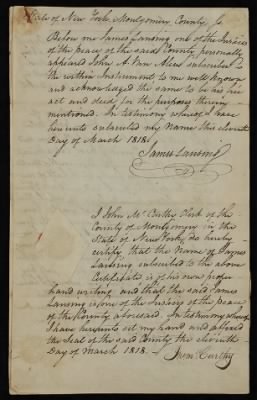 State of New York Montgomery County ss
Before me James Lansing one of the Justices
of the peace of the said County personally
appeared John A. Van Alen subscriber to
the within Instrument to me well known
and acknowledged the same to be his free
act and deed for the purposes therein
mentioned. In testimony whereof I have
hereunto subscribed my Name this eleventh
Day of March 1818.
James Lansing
I John McCarthy Clerk of the
County of Montgomery in the
State of New York, do hereby
certify, that the Name of James
Lansing subscribed to the above
Certificate is of his own proper
hand writing and that the said James
Lansing is one of the Justices of the peace
of the County aforesaid. In testimony whereof
I have hereunto set my hand and affixed
the Seal of the said County the eleventh
Day of March 1818.
McCarthy